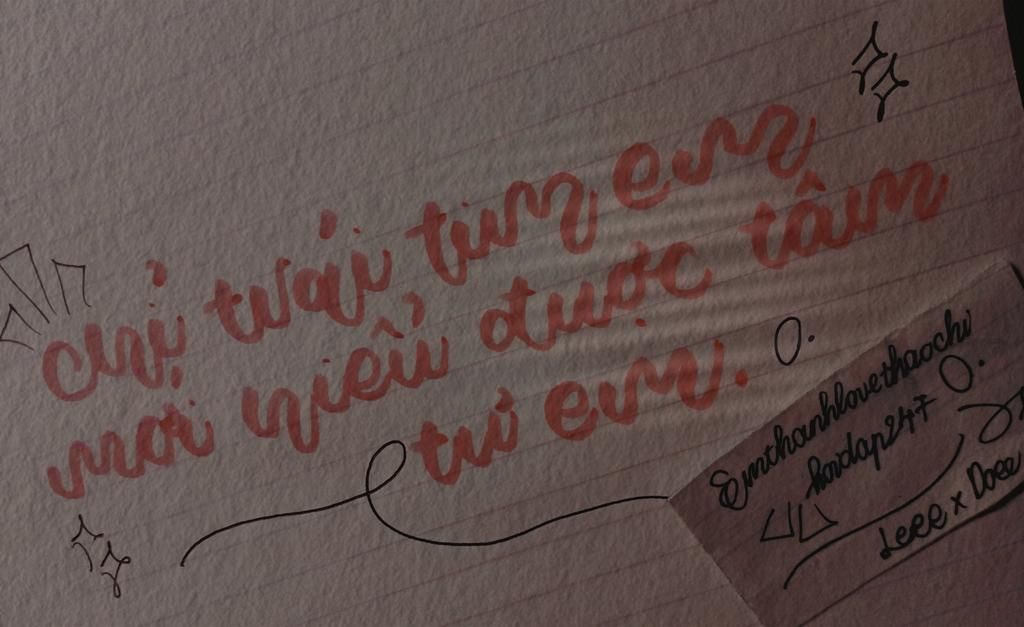 chỉ trái tim em
mới hiểu được tâm
tư em.
Emthanhlovethaochi
hoidap247
Leee x Doee